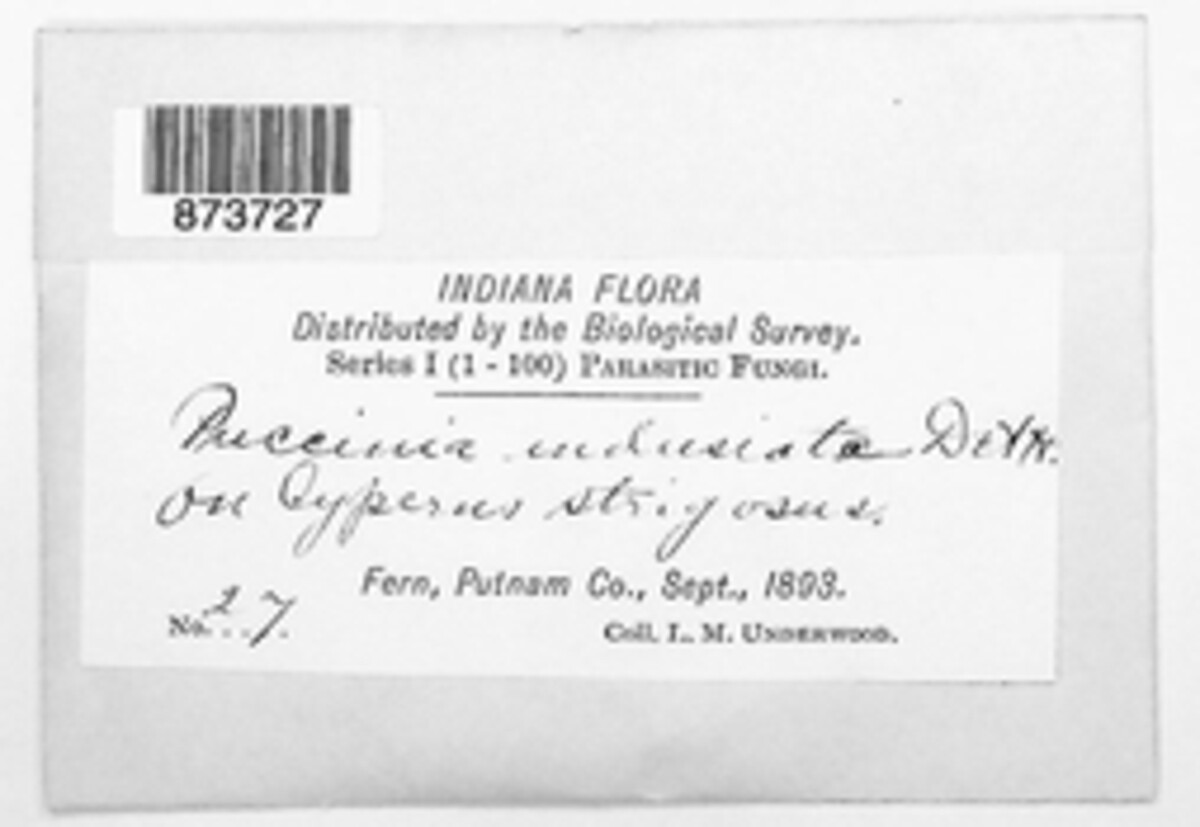 873727
INDIANA FLORA
Distributed by the Biological Survey.
Series I (1 - 100) PARASITIC FUNGI.
Puccinia indusiata D & H.
on Cyperus strigosus.
Fern, Putnam Co., Sept., 1893.
No. 27.
Coll. L. M. UNDERWOOD.